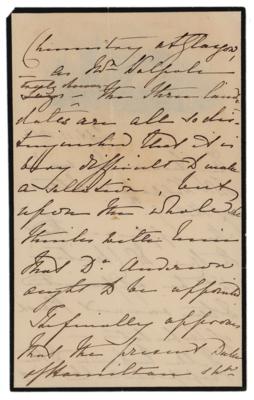 Chemistry at Glasgow,
– as Mr. Walpole
says – the three candi-
dates are all so dis-
tinguished that it is
very difficult to make
a selection, but
upon the whole she
thinks with him
that Dr. Anderson
ought to be appointed
She finally approves
that the present Duke
of Hamilton shd.